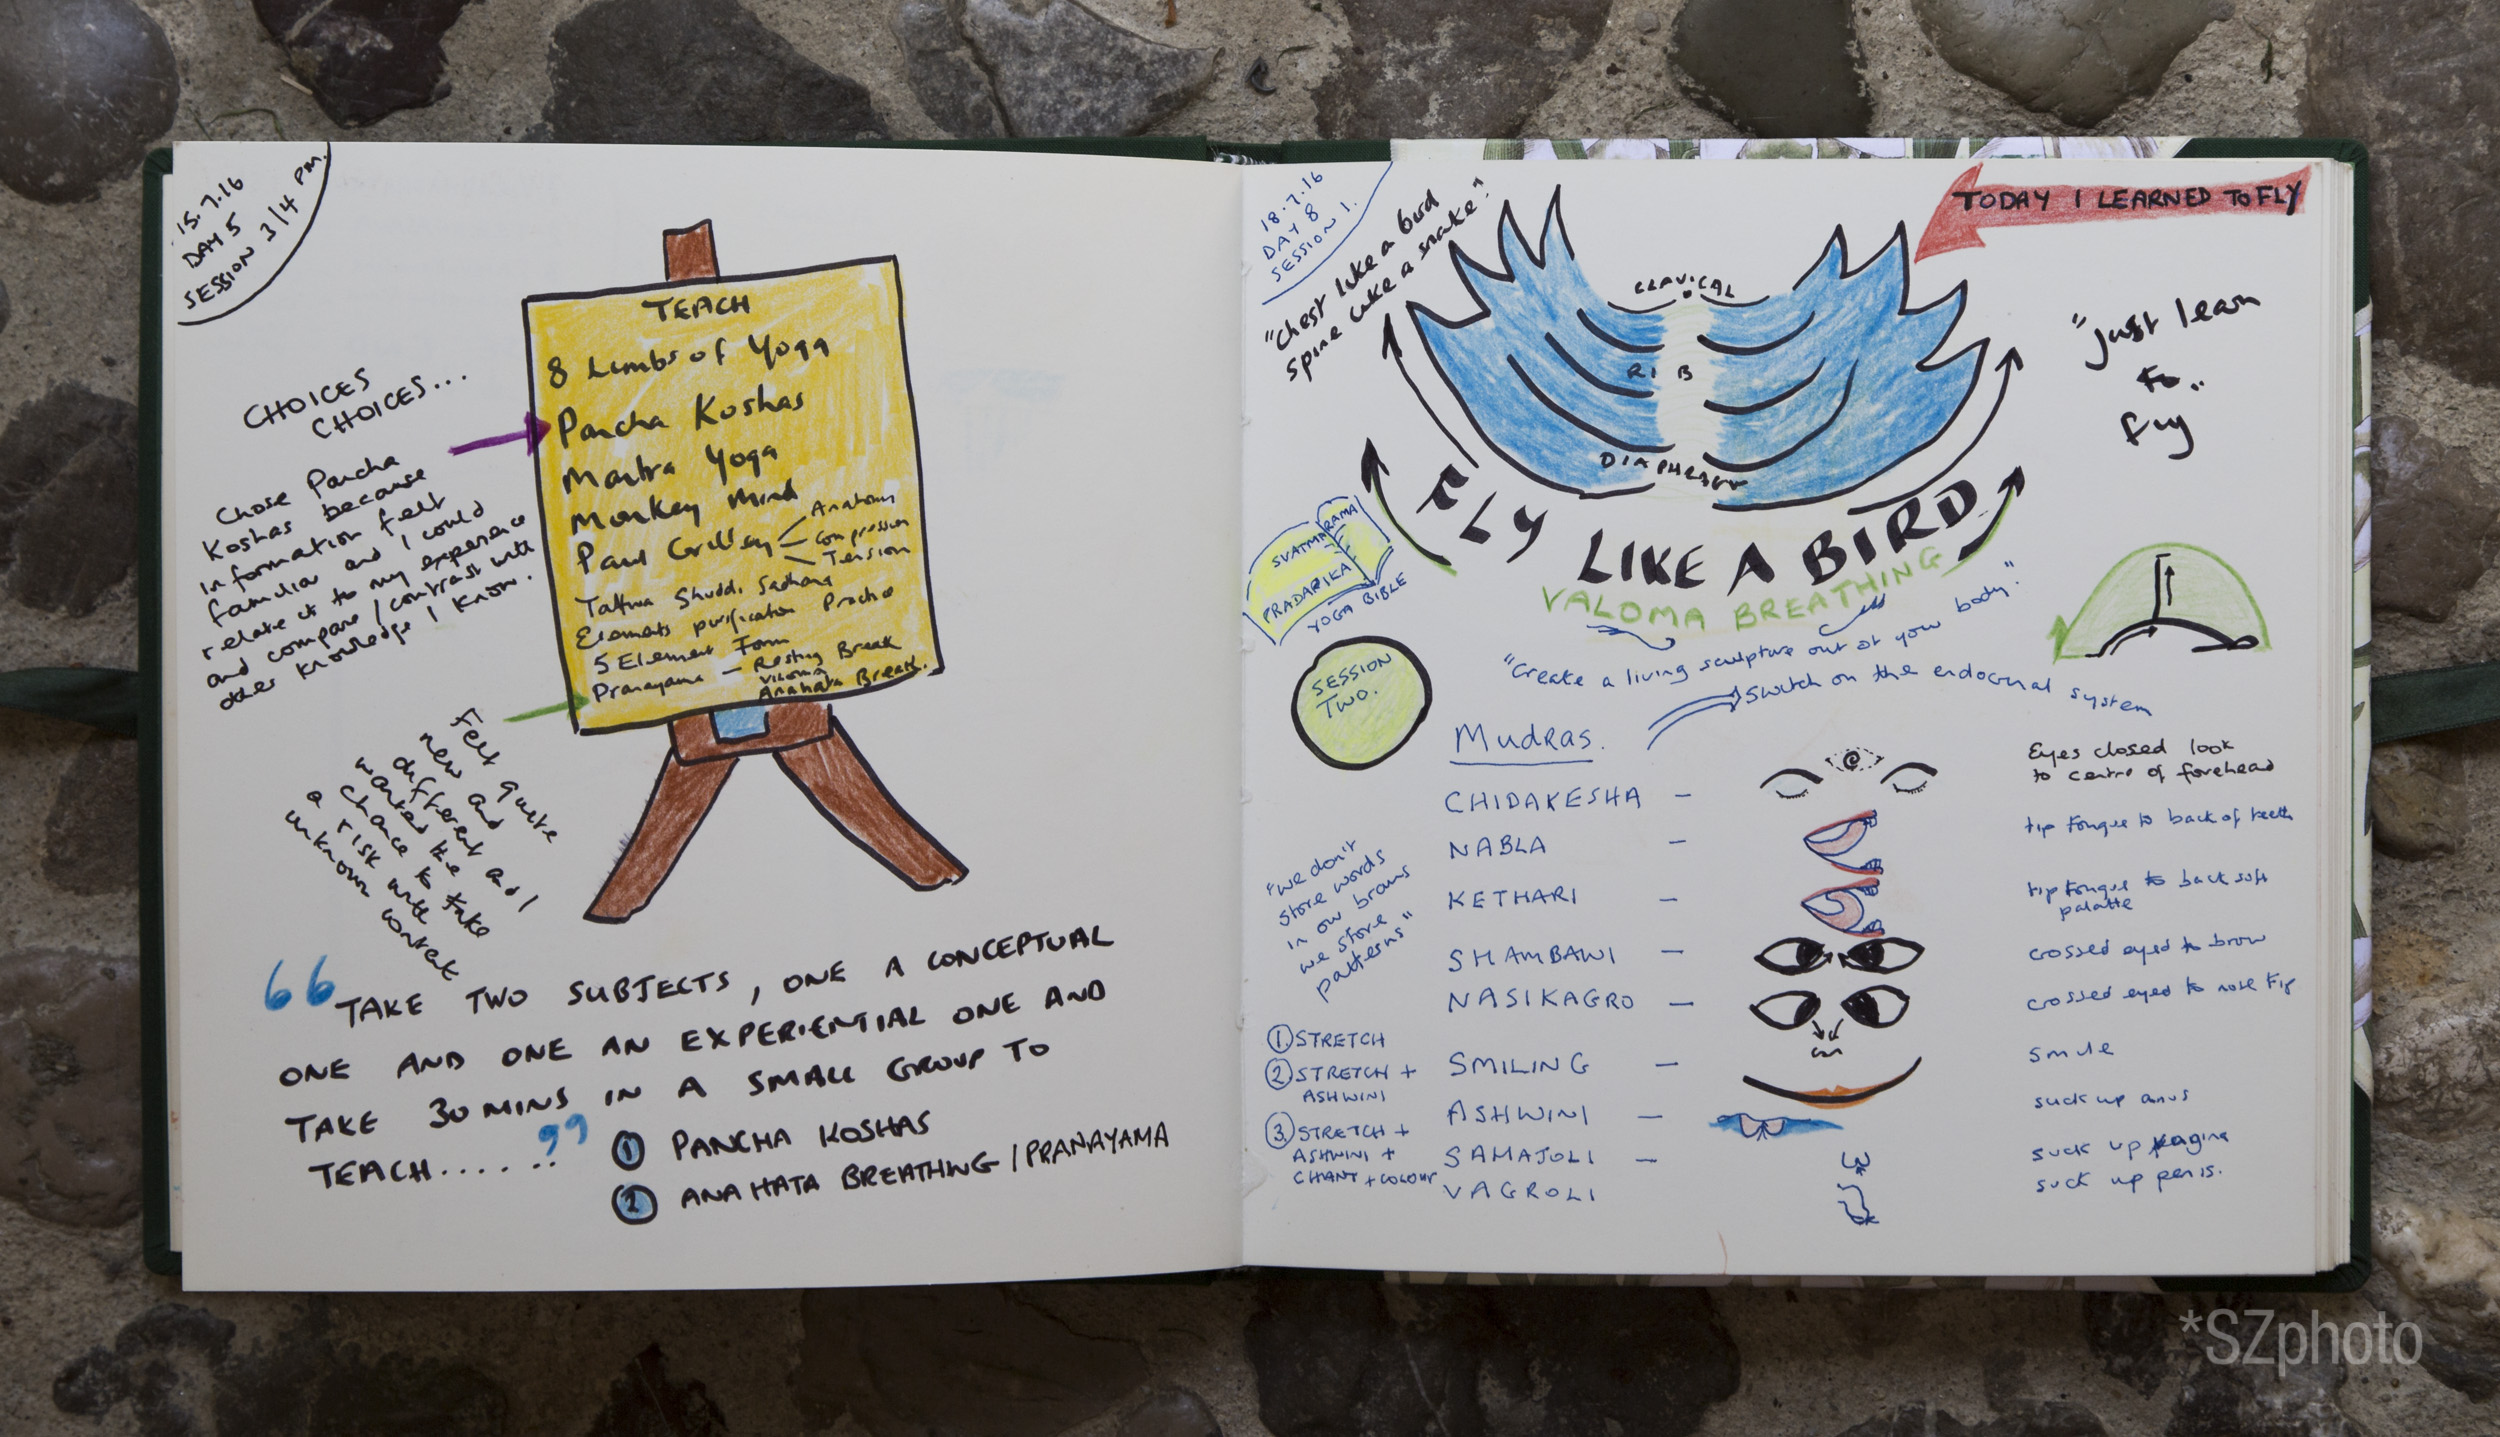 15.7.16
DAY 5
SESSION 3/4 PM.
CHOICES
CHOICES...
Chose Pancha
Koshas because
information felt
familiar and I could
relate it to my experience
and compare/contrast with
other knowledge I know.
TEACH
8 Limbs of Yoga
Pancha Koshas
Mantra Yoga
Monkey Mind
Paul Grilley
Anatomy
Compression
Tension
Tattwa Shuddi Sadhana
Elements purification Practice
5 Element Form
Pranayama – Resting Break
Viloma
Anahata Break.
Felt quite
new and
different and I
wanted the
chance to take
a risk with
unknown content
“TAKE TWO SUBJECTS, ONE A CONCEPTUAL
ONE AND ONE AN EXPERIENTIAL ONE AND
TAKE 30 MINS IN A SMALL GROUP TO
TEACH.......”
1 PANCHA KOSHAS
2 ANAHATA BREATHING/PRANAYAMA
18.7.16
DAY 8
SESSION 1.
"Chest like a bird
spine like a snake."
TODAY I LEARNED TO FLY
CLAVICAL
RIB
DIAPHRAGM
"just learn
to..
fly
FLY LIKE A BIRD
VALOMA BREATHING
SVATMARAMA
PRADARIKA
YOGA BIBLE
"Create a living sculpture out of your body."
Switch on the endocrinal system
SESSION
TWO.
Mudras.
CHIDAKESHA –
Eyes closed look
to centre of forehead
NABLA –
tip tongue to back of teeth
KETHARI –
tip tongue to back soft
palatte
SHAMBAWI –
crossed eyed to brow
NASIKAGRO –
crossed eyed to nose tip
SMILING –
smile
ASHWINI –
suck up anus
SAMAJOLI –
suck up vagina
VAGROLI
suck up penis.
"we don't
store words
in our brains
we store
patterns"
1 STRETCH
2. STRETCH +
ASHWINI
3. STRETCH +
ASHWINI +
CHANT + COLOUR
*SZphoto